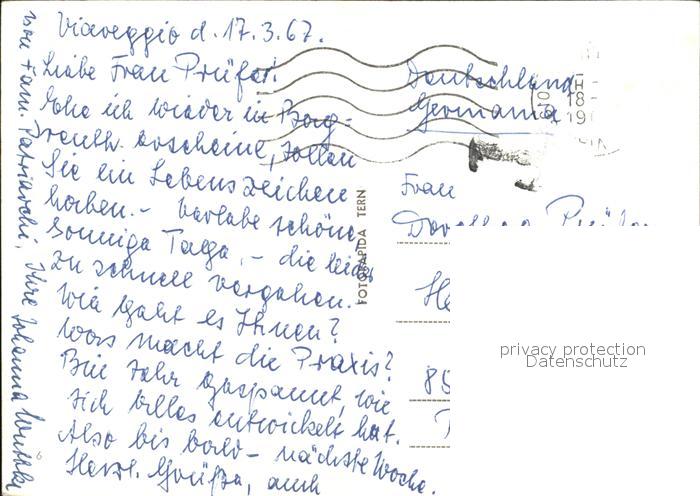 Viareggio d. 17.3.67.
Liebe Frau Prüfer!
Ehe ich wieder in Berg-
erscheine, sollen
Sie ein Lebenszeichen
haben. - Verlebe schöne
sonnige Tage, - die leider
zu schnell vergehen.
Wie geht es Ihnen?
Was macht die Praxis?
Bin sehr gespannt, wie
sich alles entwickelt hat.
Also bis bald - nächste Woche.
Herzl. Grüße, auch
von Fam. Patriarchi, Ihre Johanna
Deutschland
Germania
Frau
Prüfer
FOTORAPIDA TERNI
18-
privacy protection
Datenschutz